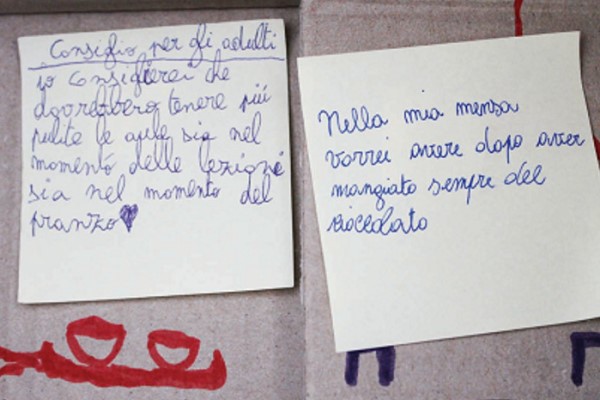 Consiglio per gli adulti
io consiglierei che
dovrebbero tenere più
pulite le aule sia nel
momento delle lezioni
sia nel momento del
pranzo
Nella mia mensa
vorrei avere dopo aver
mangiato sempre del
cioccolato